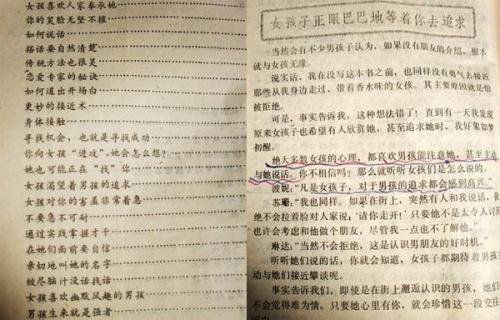 女孩喜欢人家奉承她
你的笑脸无坚不摧
如何说话
搭话要自然清楚
传统方法也很灵
恋爱专家的秘诀
如何道出开场白
更妙的接近术
身体接触
寻找机会，也就是寻找成功
你向女孩“进攻”，她会怎么想？
她也可能正在“找”你
女孩渴望着男孩的追求
女孩对你的害羞非常着急
不要急不可耐
通过实践掌握才干
在她们面前要自信
亲切地叫她的名字
绞尽脑汁没话找话
女孩喜欢幽默风趣的男孩
男孩生来就是强者
女孩子正眼巴巴地等着你去追求
当然会有不少男孩子认为，如果没有朋友的介绍，根本
就与女孩无缘。
说实话，我在没写这本书之前，也同样没有勇气去接近
那些从我身边走过，带着香水味的女孩。其主要原因就是怕
被拒绝。
可是，事实告诉我，这种想法错了！直到有一天我发现
原来女孩子也希望有人欣赏她、甚至追求她时，我好象如梦
初醒。
绝大多数女孩的心理，都喜欢男孩能注意她，甚至主动
与她说话。你不相信吗？那么就听听女孩们是怎么说的。
波妮：“凡是女孩子，对于男孩的追求都会感到高兴。”
苏珊：“我也同样。如果在街上，突然有人和我说话，我
绝不会拉着脸对人家说：‘请你走开！’只要他不是太令人讨
也许会考虑和他做个朋友，尽管我一点也不了解他。”
琳达：“当然不会拒绝，这是认识男朋友的好时机。”
听听她们说的话，你就会知道，女孩子都期待着男孩主
动与她们接近攀谈呢。
事实告诉我们，即使是在街上邂逅认识的男孩，她们
不会觉得难为情。只要她心里有你，就会珍惜这一段交往